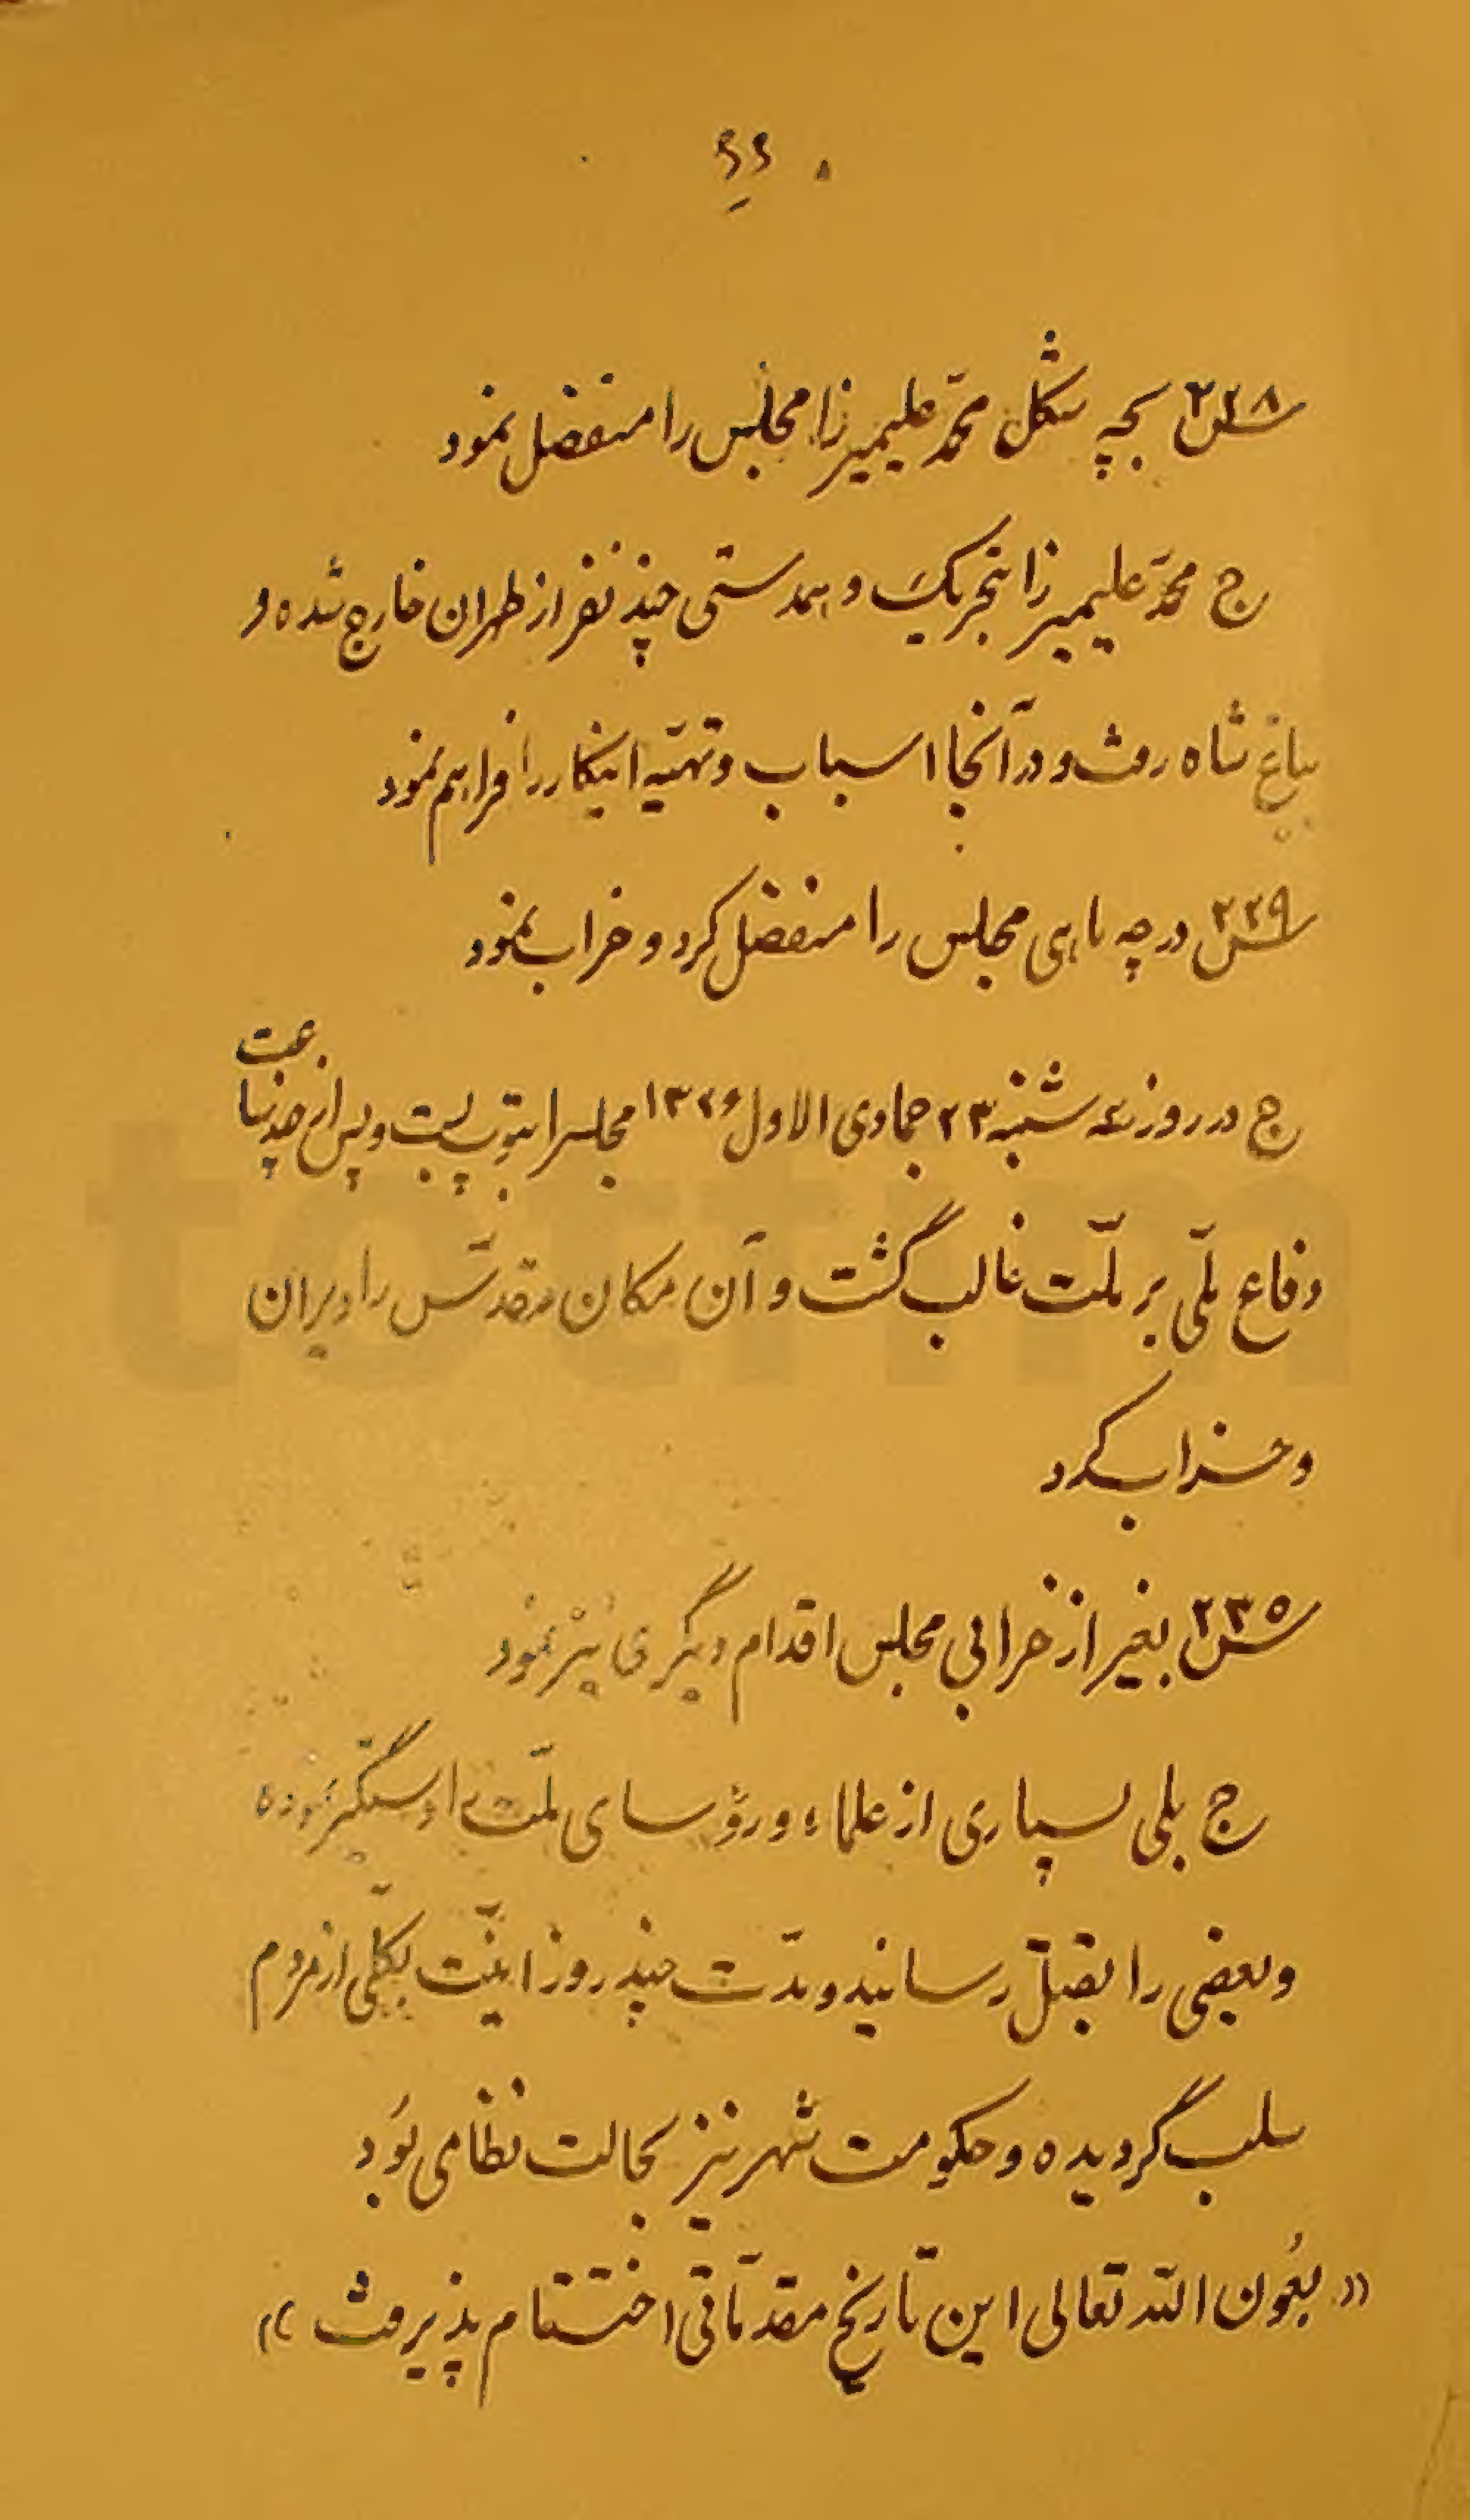 ۶۶
س۲۲۸ بچه شکل محمّد علیمیرزا مجلس را منفصل نمود
ج محمّد علیمیرزا بتحریک و همدستی چند نفر از طهران خارج شده و
بباغ شاه رفت و در آنجا اسباب و تهیّه اینکار را فراهم نمود
س۲۲۹ در چه ماهی مجلس را منفصل کرد و خراب نمود
ج در روز سه شنبه ۲۳ جمادی الاول ۱۳۲۶ مجلسرا بتوپ بست و پس از چند ساعت
دفاع ملّی بر ملّت غالب گشت و آن مکان مقدّس را ویران
و خراب کرد
س۲۳۰ بغیر از خرابی مجلس اقدام دیگری نیز نمود
ج بلی بسیاری از علماء و رؤسای ملّت را دستگیر نموده
و بعضی را بقتل رسانید و مدّت چند روز امنیّت بکلّی از مردم
سلب گردیده و حکومت شهر نیز بحالت نظامی بود
«بعون الله تعالی این تاریخ مقدّماتی اختتام پذیرفت»